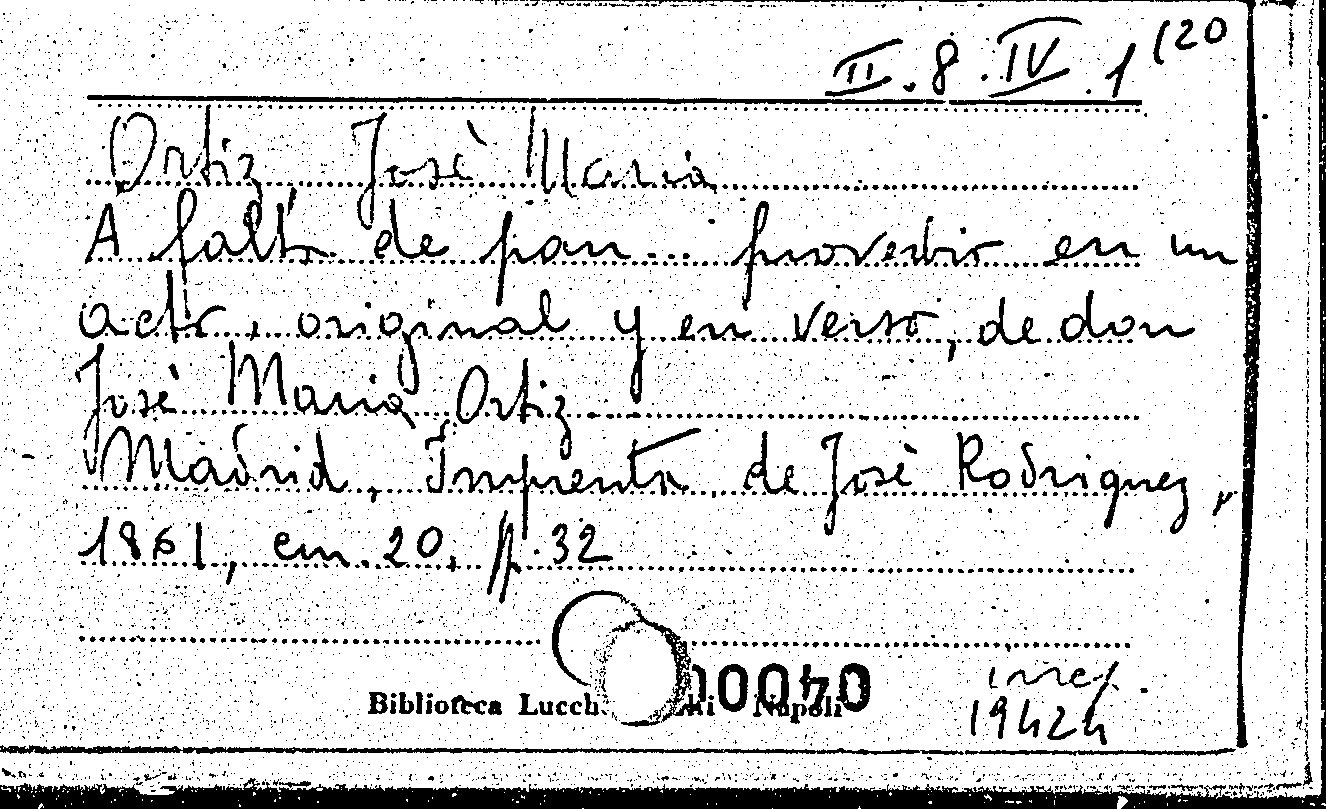 II.8.IV.1(20
Ortiz José Maria
A falta de pan... proverbio en un
acto, original y en verso, de don
Josè Maria Ortiz
Madrid, Imprenta de Josè Rodriguez,
1861, cm.20, p.32
Biblioteca Napoli
19424